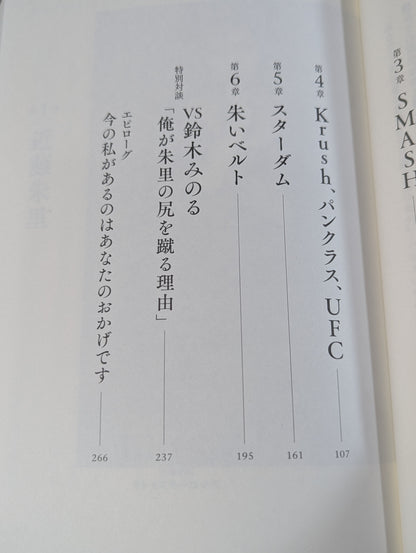 第3章
SMASH
第4章
Krush、パンクラス、UFC
107
第5章
スターダム
161
第6章
朱いベルト
195
特別対談
VS鈴木みのる
「俺が朱里の尻を蹴る理由」
237
エピローグ
今の私があるのはあなたのおかげです
266